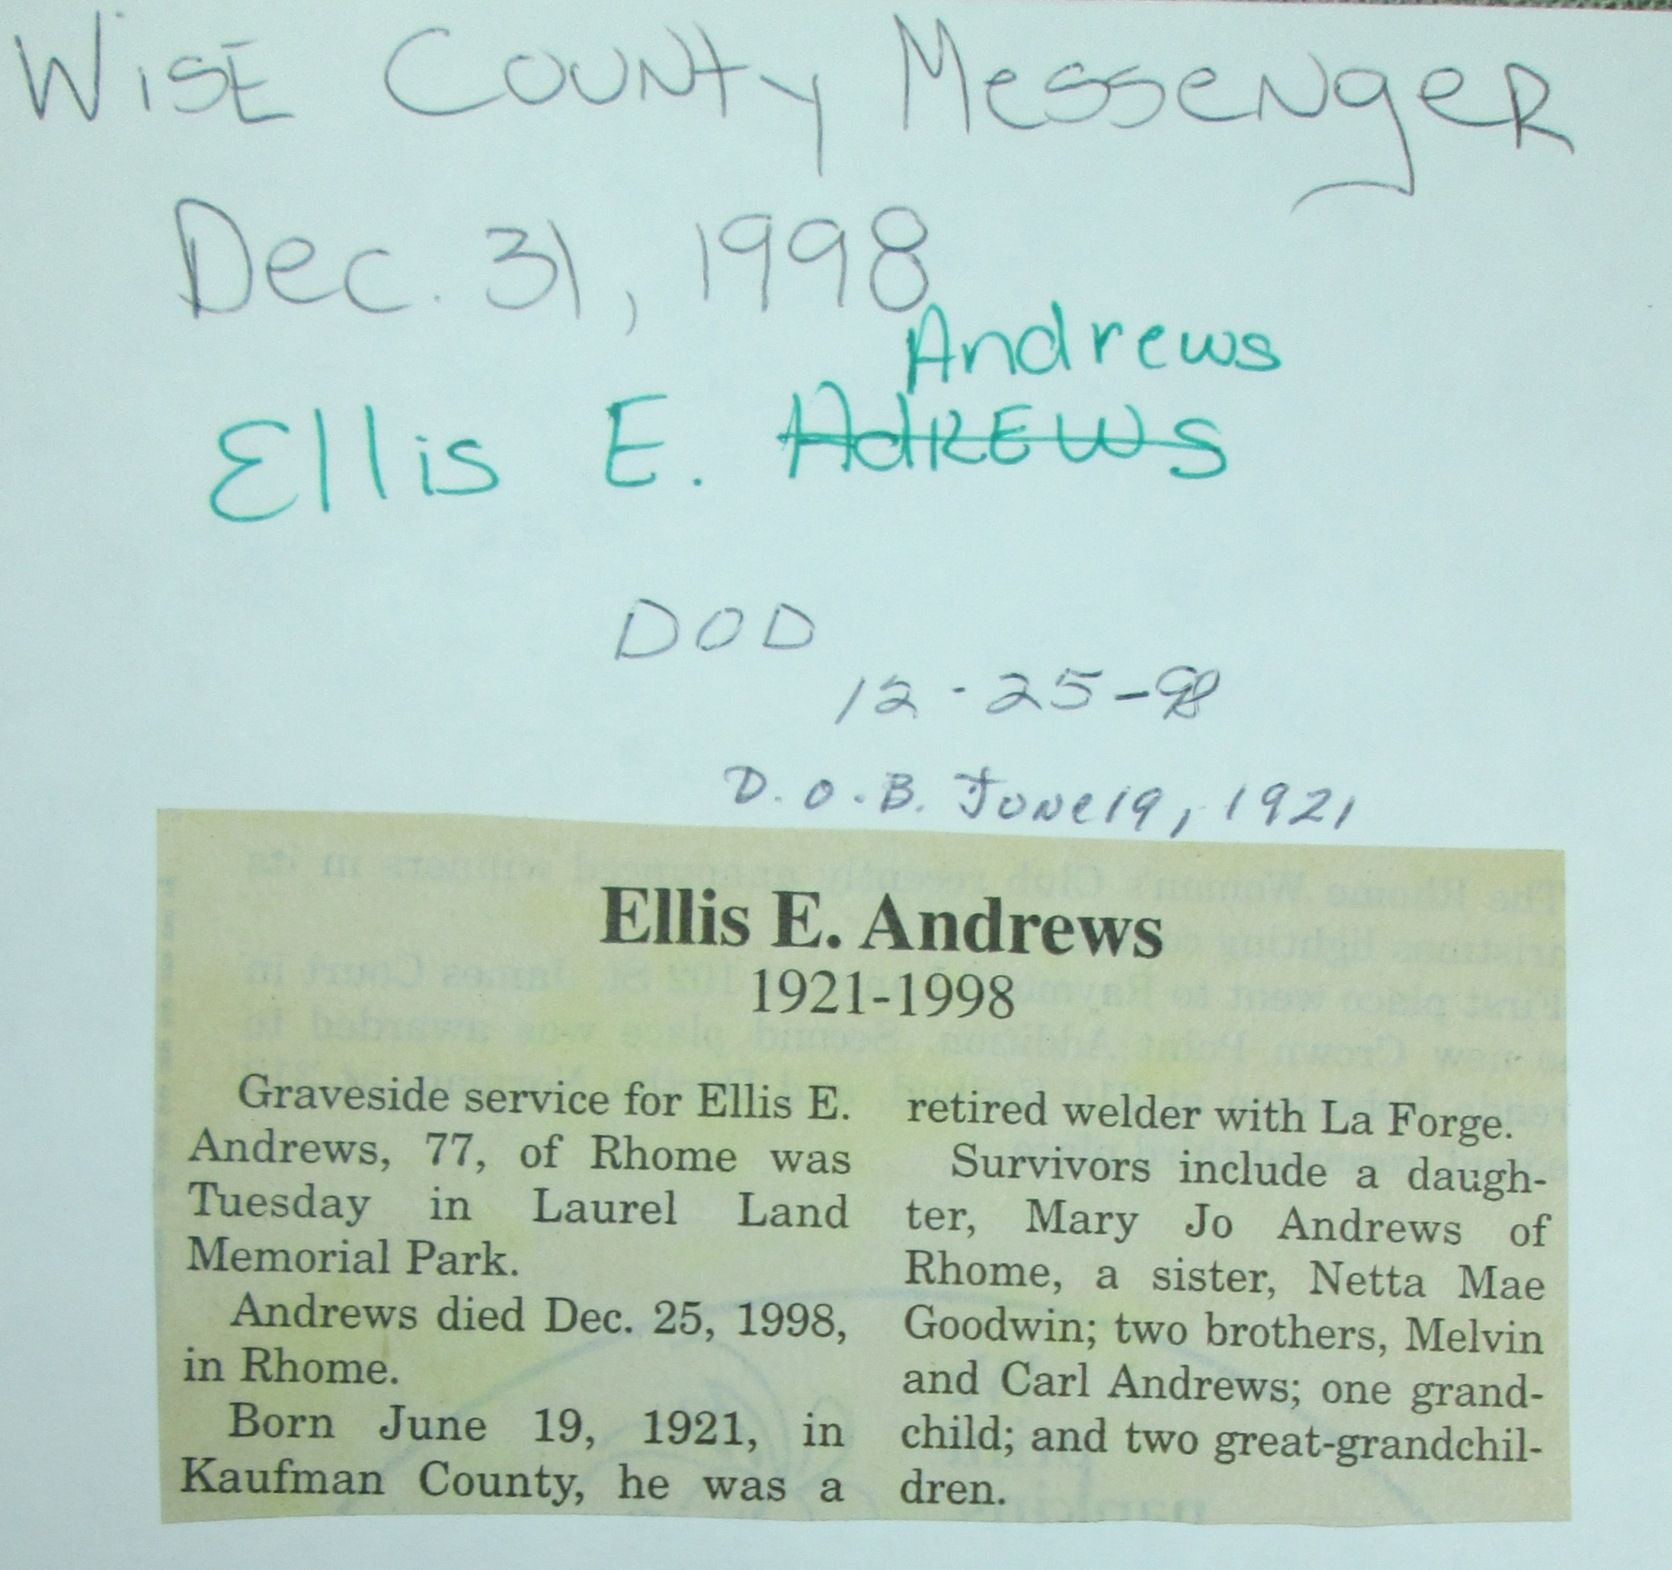 WISE COUNTY MESSENGER
Dec. 31, 1998
Andrews
Ellis E. AdREWS
DOD
12-25-98
D.O.B. June 19, 1921
Ellis E. Andrews
1921-1998
Graveside service for Ellis E.
Andrews, 77, of Rhome was
Tuesday in Laurel Land
Memorial Park.
Andrews died Dec. 25, 1998,
in Rhome.
Born June 19, 1921, in
Kaufman County, he was a
retired welder with La Forge.
Survivors include a daugh-
ter, Mary Jo Andrews of
Rhome, a sister, Netta Mae
Goodwin; two brothers, Melvin
and Carl Andrews; one grand-
child; and two great-grandchil-
dren.